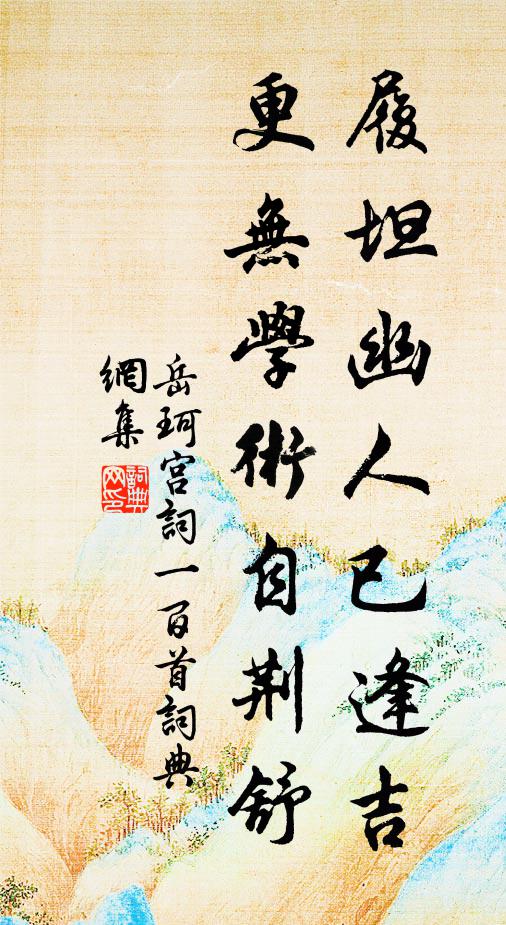 履坦幽人已逢吉
更無學術自荆舒
岳珂宮詞一百首詞典
網集
詞典網印